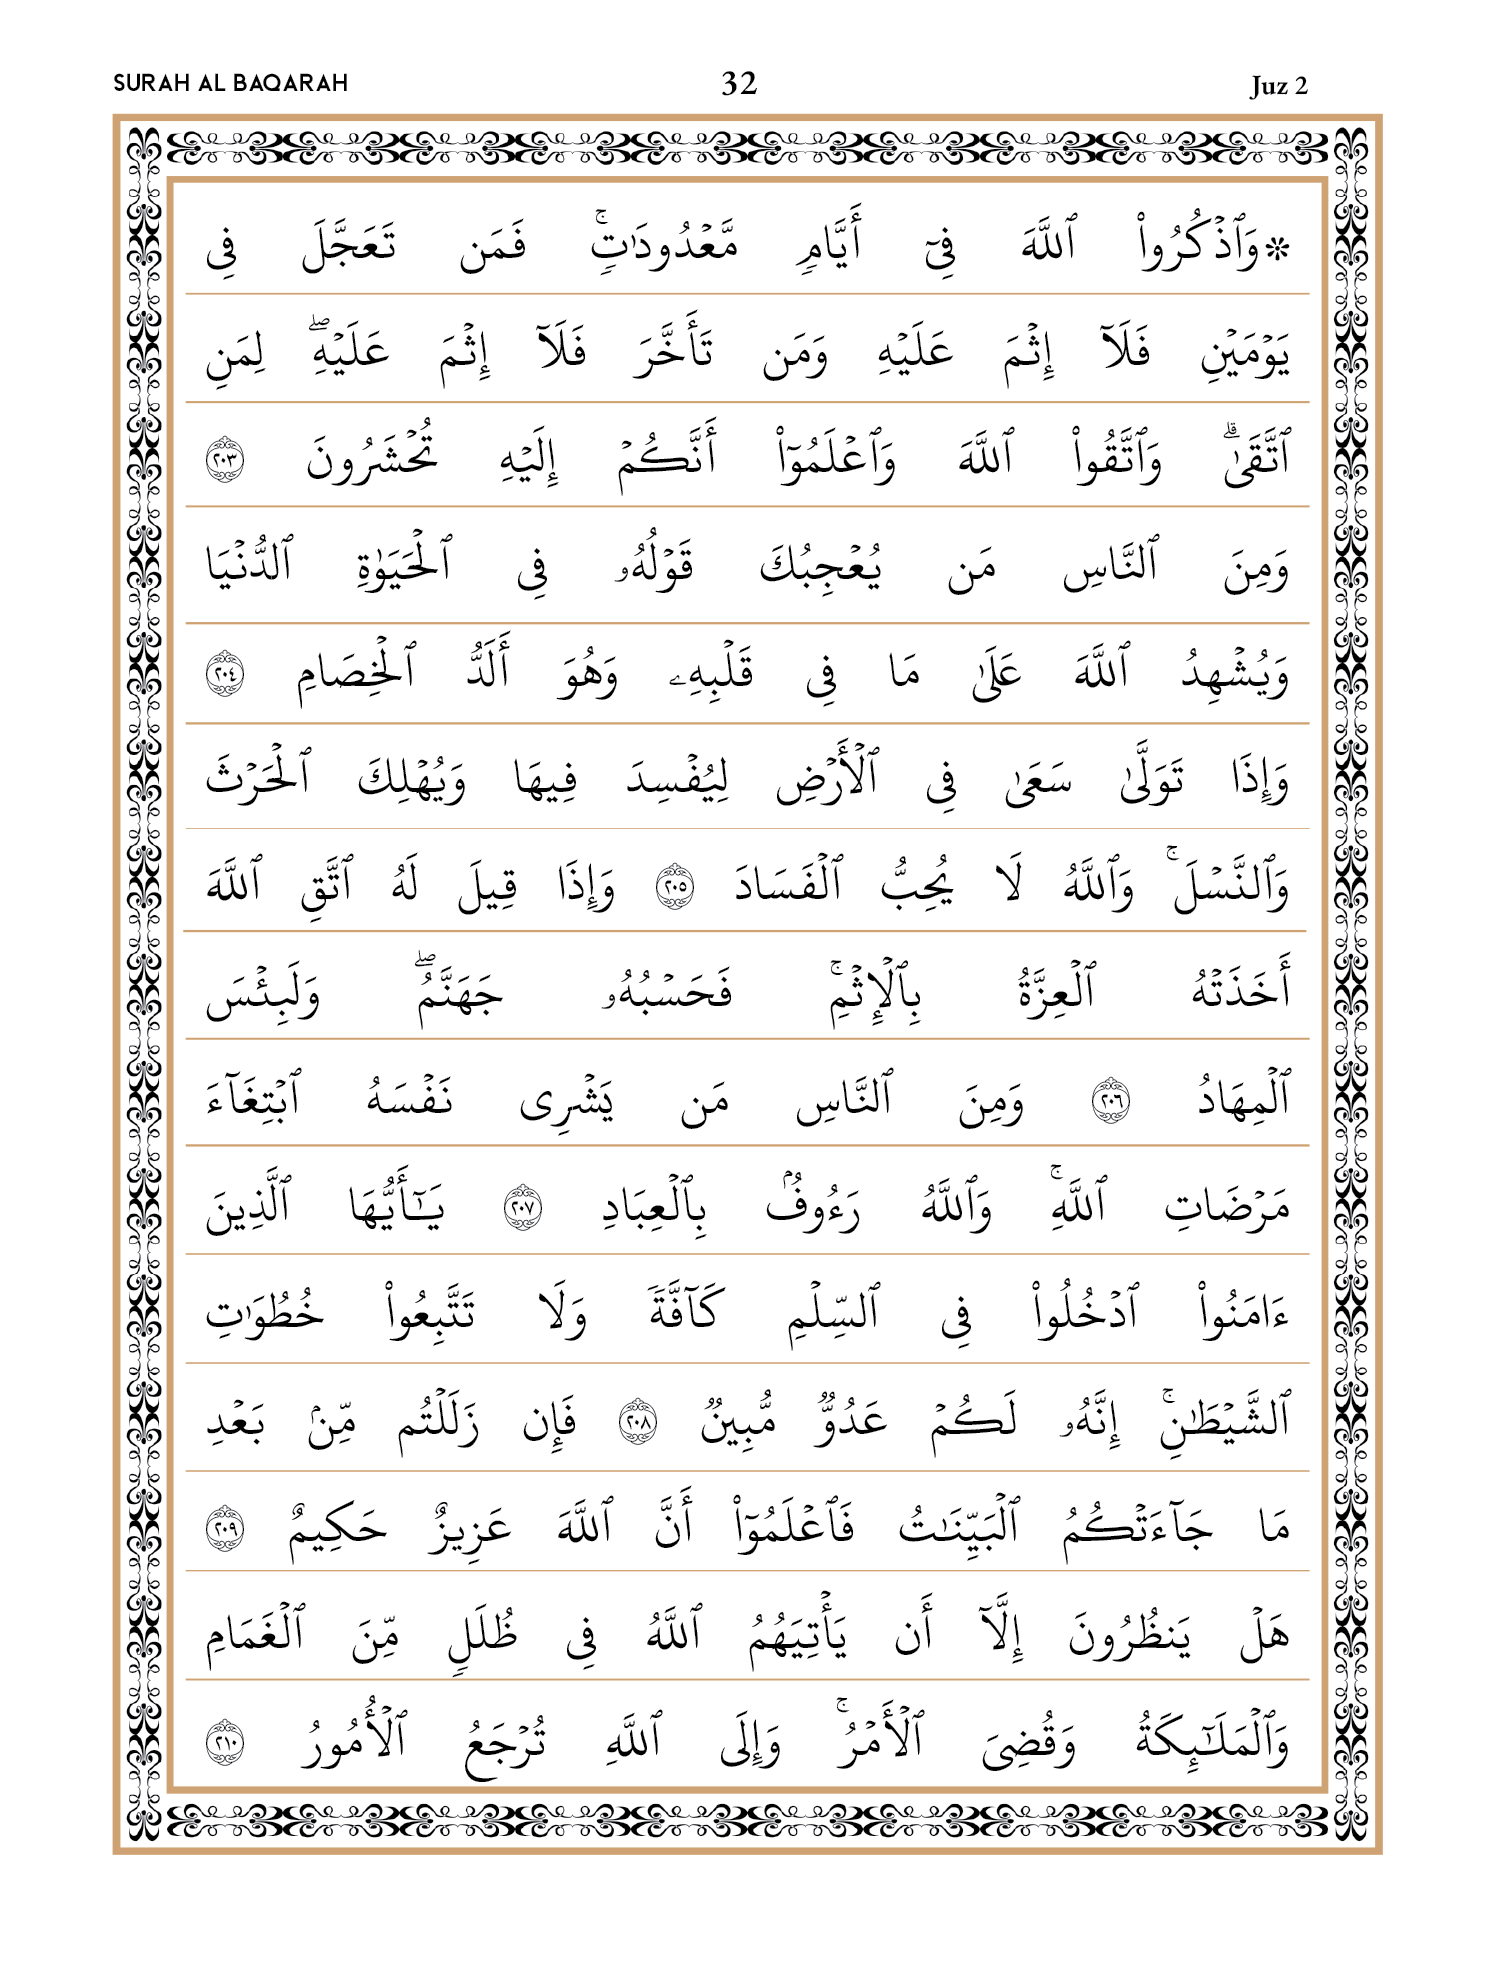 SURAH AL BAQARAH 32 Juz 2
۞وَٱذۡكُرُواْ ٱللَّهَ فِيٓ أَيَّامٖ مَّعۡدُودَٰتٖۚ فَمَن تَعَجَّلَ فِي
يَوۡمَيۡنِ فَلَآ إِثۡمَ عَلَيۡهِ وَمَن تَأَخَّرَ فَلَآ إِثۡمَ عَلَيۡهِۖ لِمَنِ
ٱتَّقَىٰۗ وَٱتَّقُواْ ٱللَّهَ وَٱعۡلَمُوٓاْ أَنَّكُمۡ إِلَيۡهِ تُحۡشَرُونَ ٢٠٣
وَمِنَ ٱلنَّاسِ مَن يُعۡجِبُكَ قَوۡلُهُۥ فِي ٱلۡحَيَوٰةِ ٱلدُّنۡيَا
وَيُشۡهِدُ ٱللَّهَ عَلَىٰ مَا فِي قَلۡبِهِۦ وَهُوَ أَلَدُّ ٱلۡخِصَامِ ٢٠٤
وَإِذَا تَوَلَّىٰ سَعَىٰ فِي ٱلۡأَرۡضِ لِيُفۡسِدَ فِيهَا وَيُهۡلِكَ ٱلۡحَرۡثَ
وَٱلنَّسۡلَۚ وَٱللَّهُ لَا يُحِبُّ ٱلۡفَسَادَ ٢٠٥ وَإِذَا قِيلَ لَهُ ٱتَّقِ ٱللَّهَ
أَخَذَتۡهُ ٱلۡعِزَّةُ بِٱلۡإِثۡمِۚ فَحَسۡبُهُۥ جَهَنَّمُۖ وَلَبِئۡسَ
ٱلۡمِهَادُ ٢٠٦ وَمِنَ ٱلنَّاسِ مَن يَشۡرِي نَفۡسَهُ ٱبۡتِغَآءَ
مَرۡضَاتِ ٱللَّهِۚ وَٱللَّهُ رَءُوفُۢ بِٱلۡعِبَادِ ٢٠٧ يَـٰٓأَيُّهَا ٱلَّذِينَ
ءَامَنُواْ ٱدۡخُلُواْ فِي ٱلسِّلۡمِ كَآفَّةٗ وَلَا تَتَّبِعُواْ خُطُوَٰتِ
ٱلشَّيۡطَٰنِۚ إِنَّهُۥ لَكُمۡ عَدُوّٞ مُّبِينٞ ٢٠٨ فَإِن زَلَلۡتُم مِّنۢ بَعۡدِ
مَا جَآءَتۡكُمُ ٱلۡبَيِّنَٰتُ فَٱعۡلَمُوٓاْ أَنَّ ٱللَّهَ عَزِيزٌ حَكِيمٌ ٢٠٩
هَلۡ يَنظُرُونَ إِلَّآ أَن يَأۡتِيَهُمُ ٱللَّهُ فِي ظُلَلٖ مِّنَ ٱلۡغَمَامِ
وَٱلۡمَلَـٰٓئِكَةُ وَقُضِيَ ٱلۡأَمۡرُۚ وَإِلَى ٱللَّهِ تُرۡجَعُ ٱلۡأُمُورُ ٢١٠